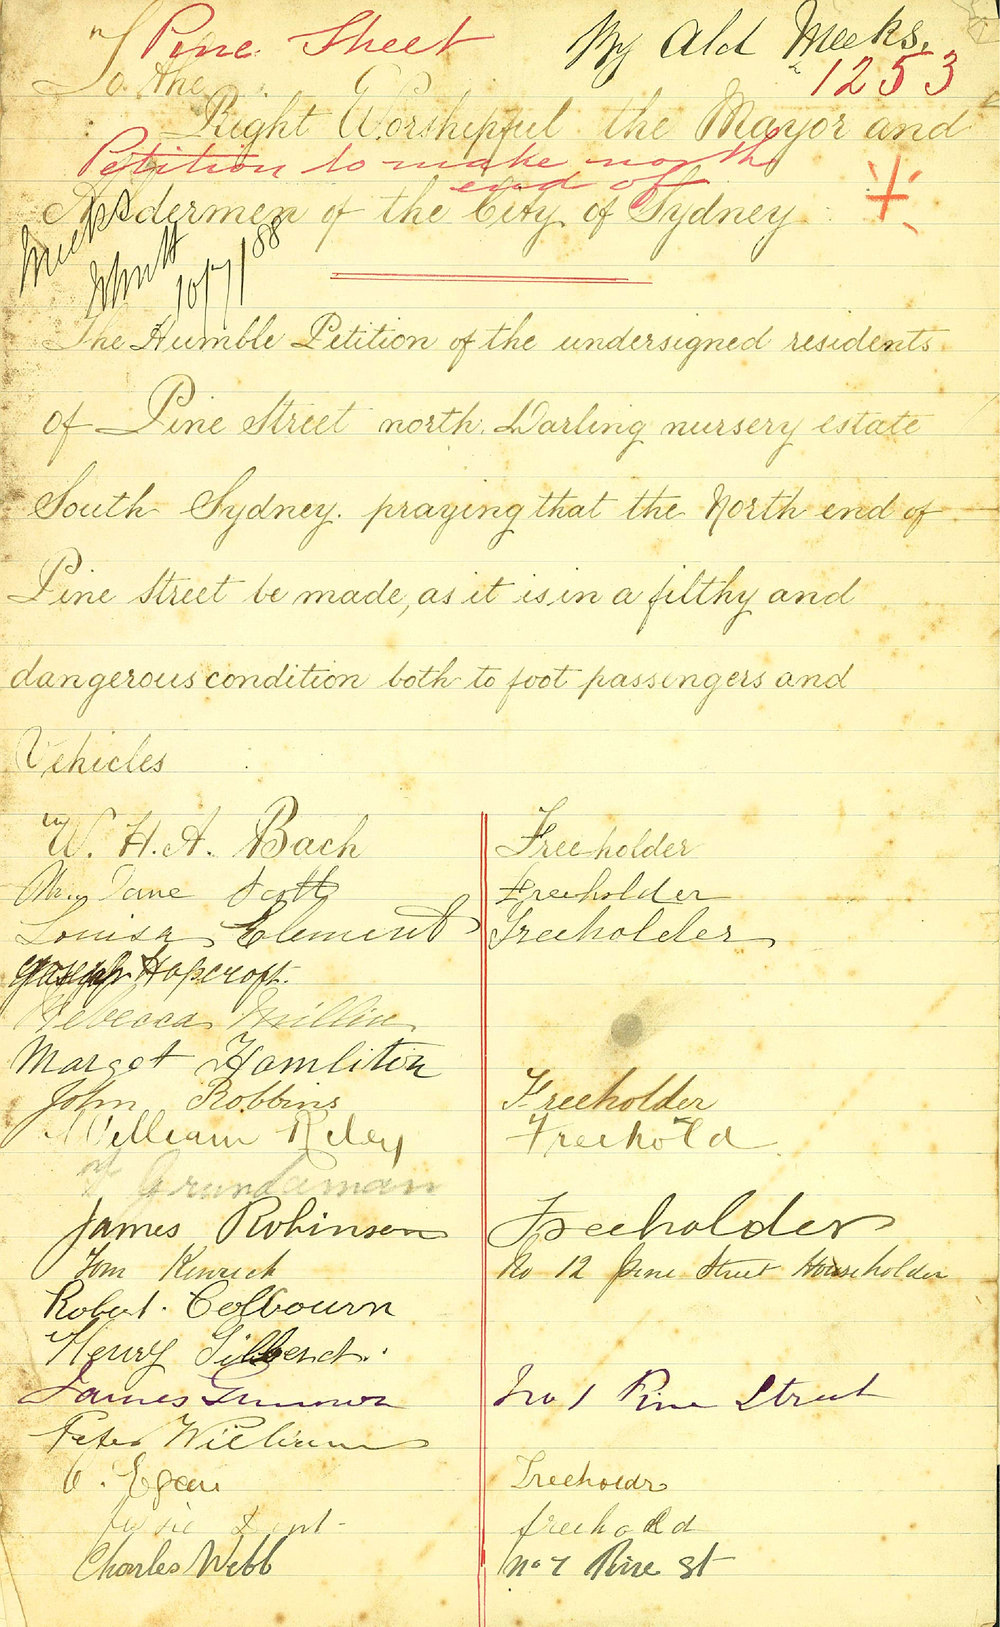 Pine Street
By Ald Meeks.
1253
To the
Right Worshipful the Mayor and
Petition to make north
end of
Aldermen of the City of Sydney
Meeks
10/7/88
The Humble Petition of the undersigned residents
of Pine Street north. Darling nursery estate
South Sydney. praying that the North end of
Pine street be made, as it is in a filthy and
dangerous condition both to foot passengers and
Vehicles
W. H. A. Bach Freeholder
Jane Scott Freeholder
Louisa Clement Freeholder
Joseph Hopcroft.
Rebecca Millin
Marget Hamliton
John Robbins Freeholder
William Riley Freehold
James Robinson Freeholder
Tom Kenrick No 12 Pine Street Householder
Robert. Colbourn
Henry
James No 1 Pine Street
Peter William
Egan Freeholdr
freehold
Charles Webb No 7 Pine St